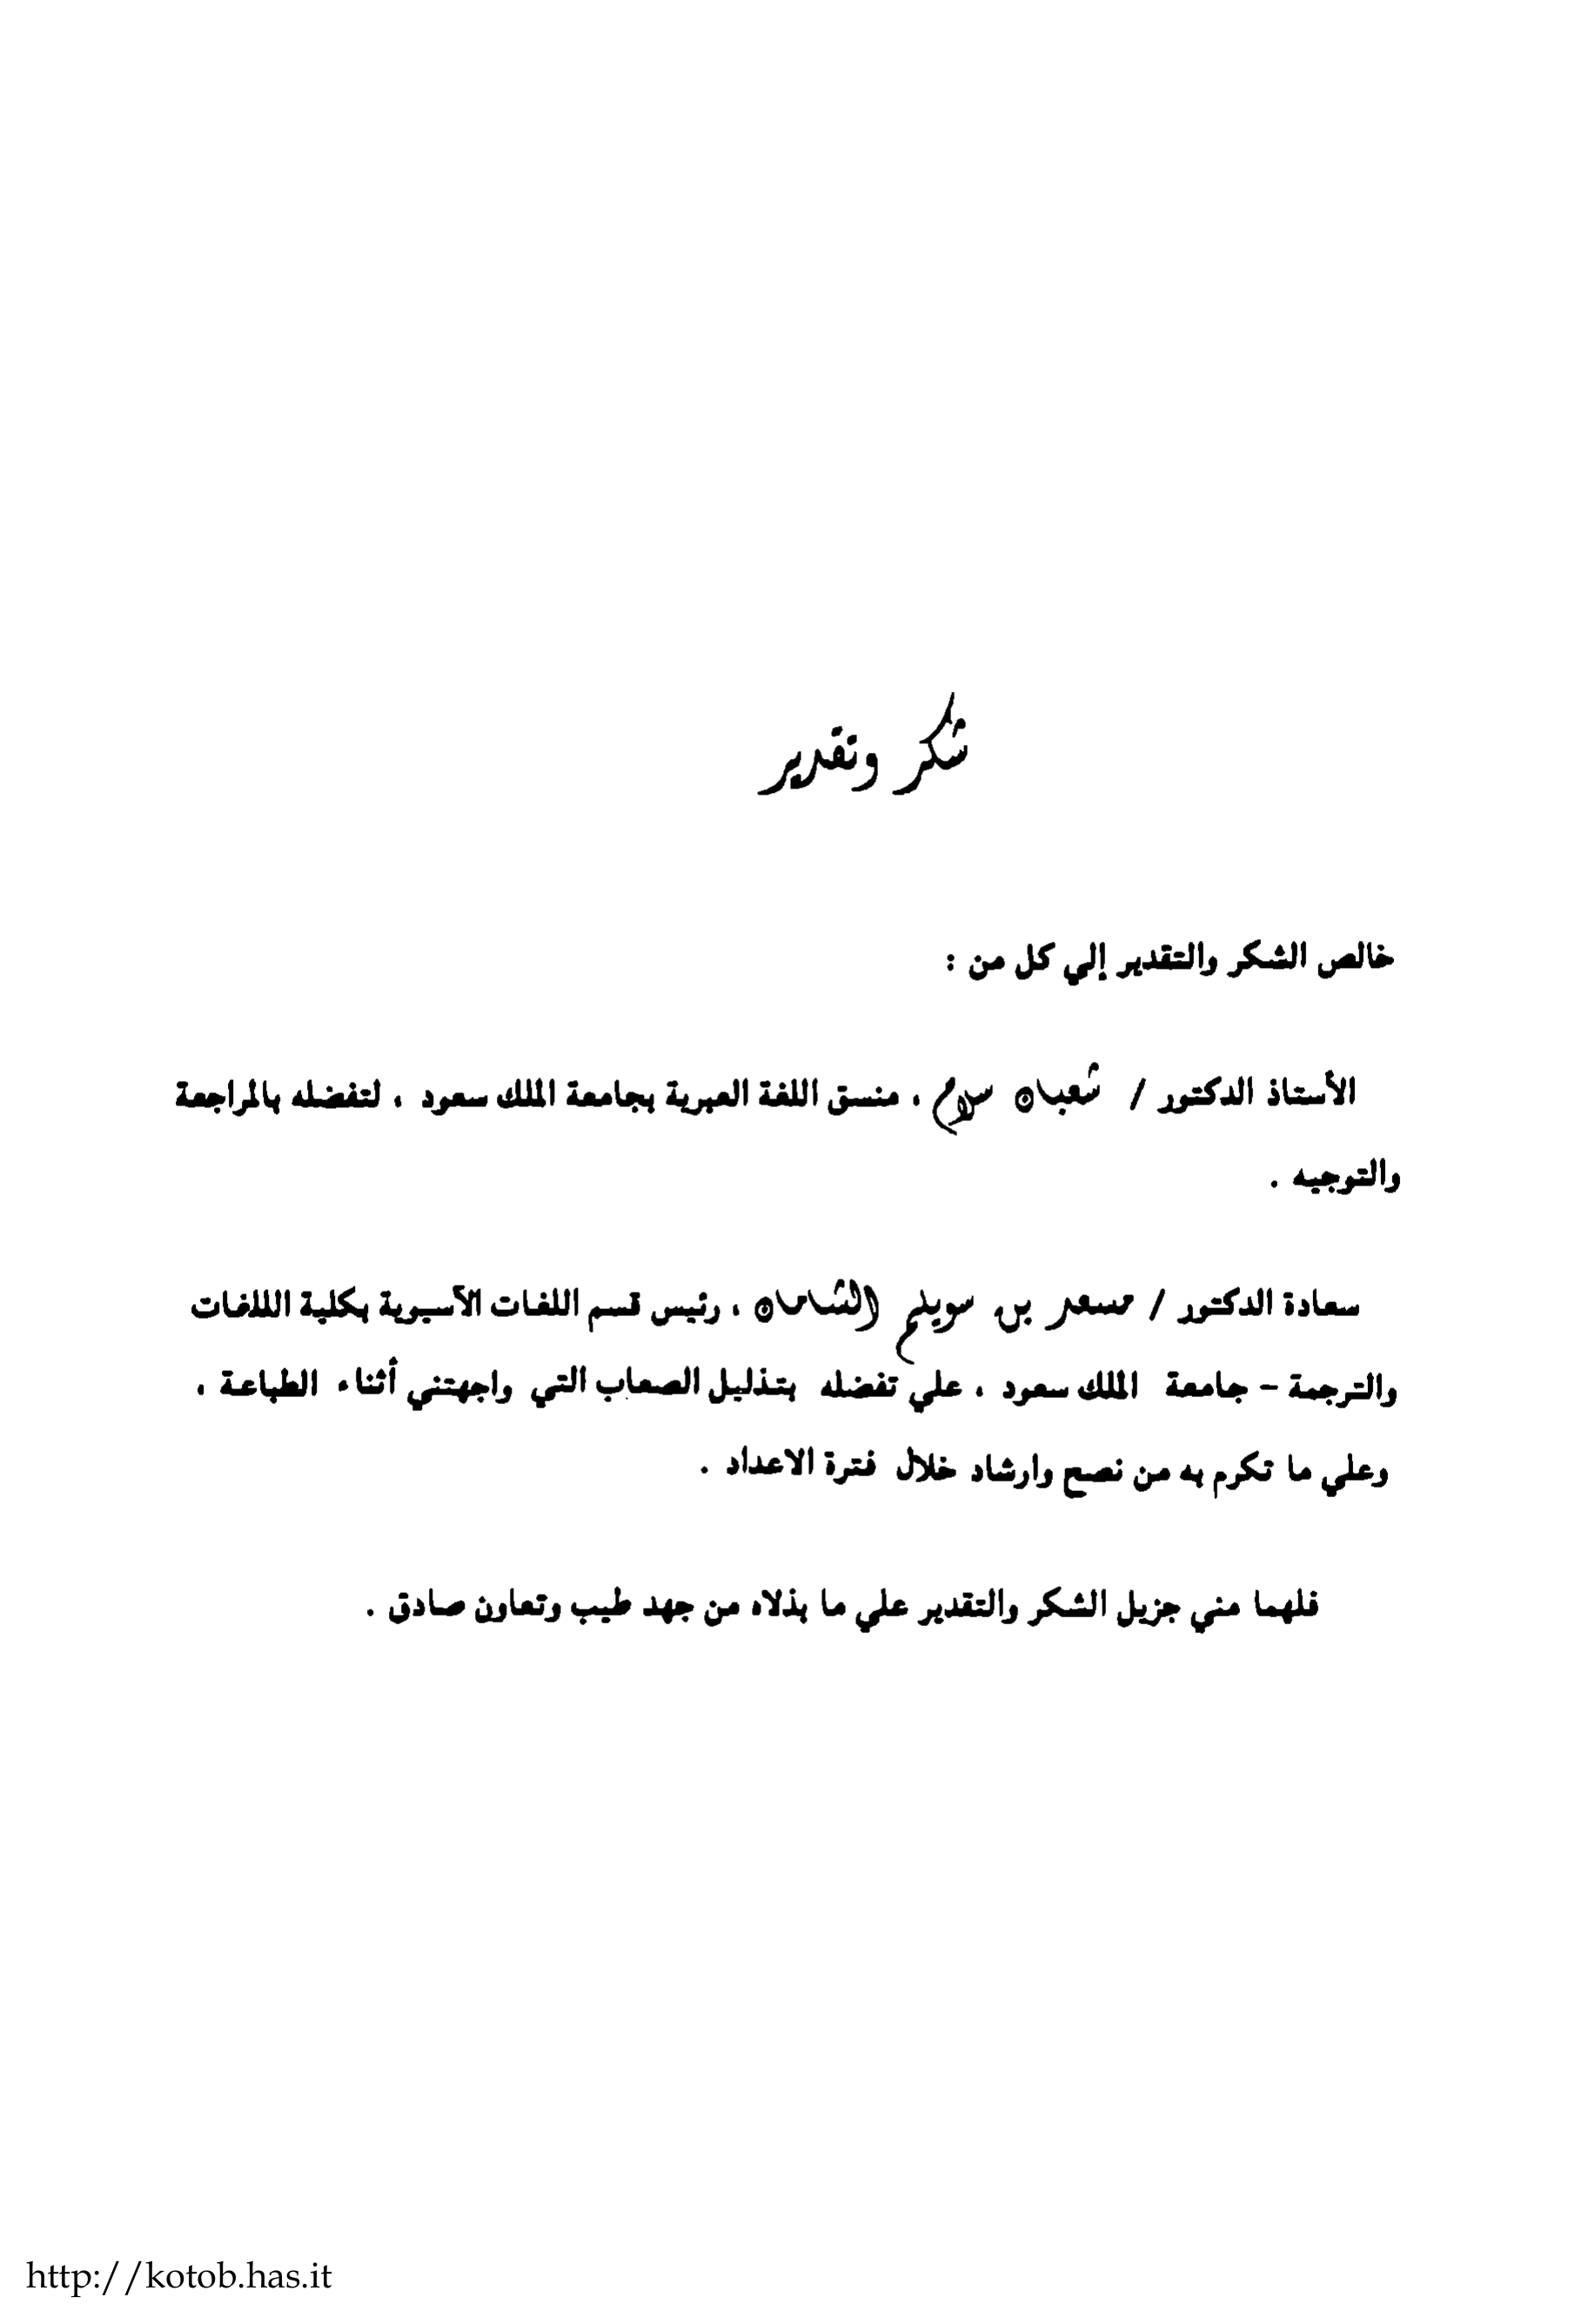 شكر وتقدير
خالص الشكر والتقدير إلي كل من :
الأستاذ الدكتور / شعبان سلام ، منسق اللغة العبرية بجامعة الملك سعود ، لتفضله بالمراجعة
والتوجيه .
سعادة الدكتور / سعد بن سويلم الشامان ، رئيس قسم اللغات الآسيوية بكلية اللغات
والترجمة - جامعة الملك سعود ، علي تفضله بتذليل الصعاب التي واجهتني أثناء الطباعة ،
وعلي ما تكرم به من نصح وارشاد خلال فترة الاعداد .
فلهما مني جزيل الشكر والتقدير علي ما بذلاه من جهد طيب وتعاون صادق .
http://kotob.has.it